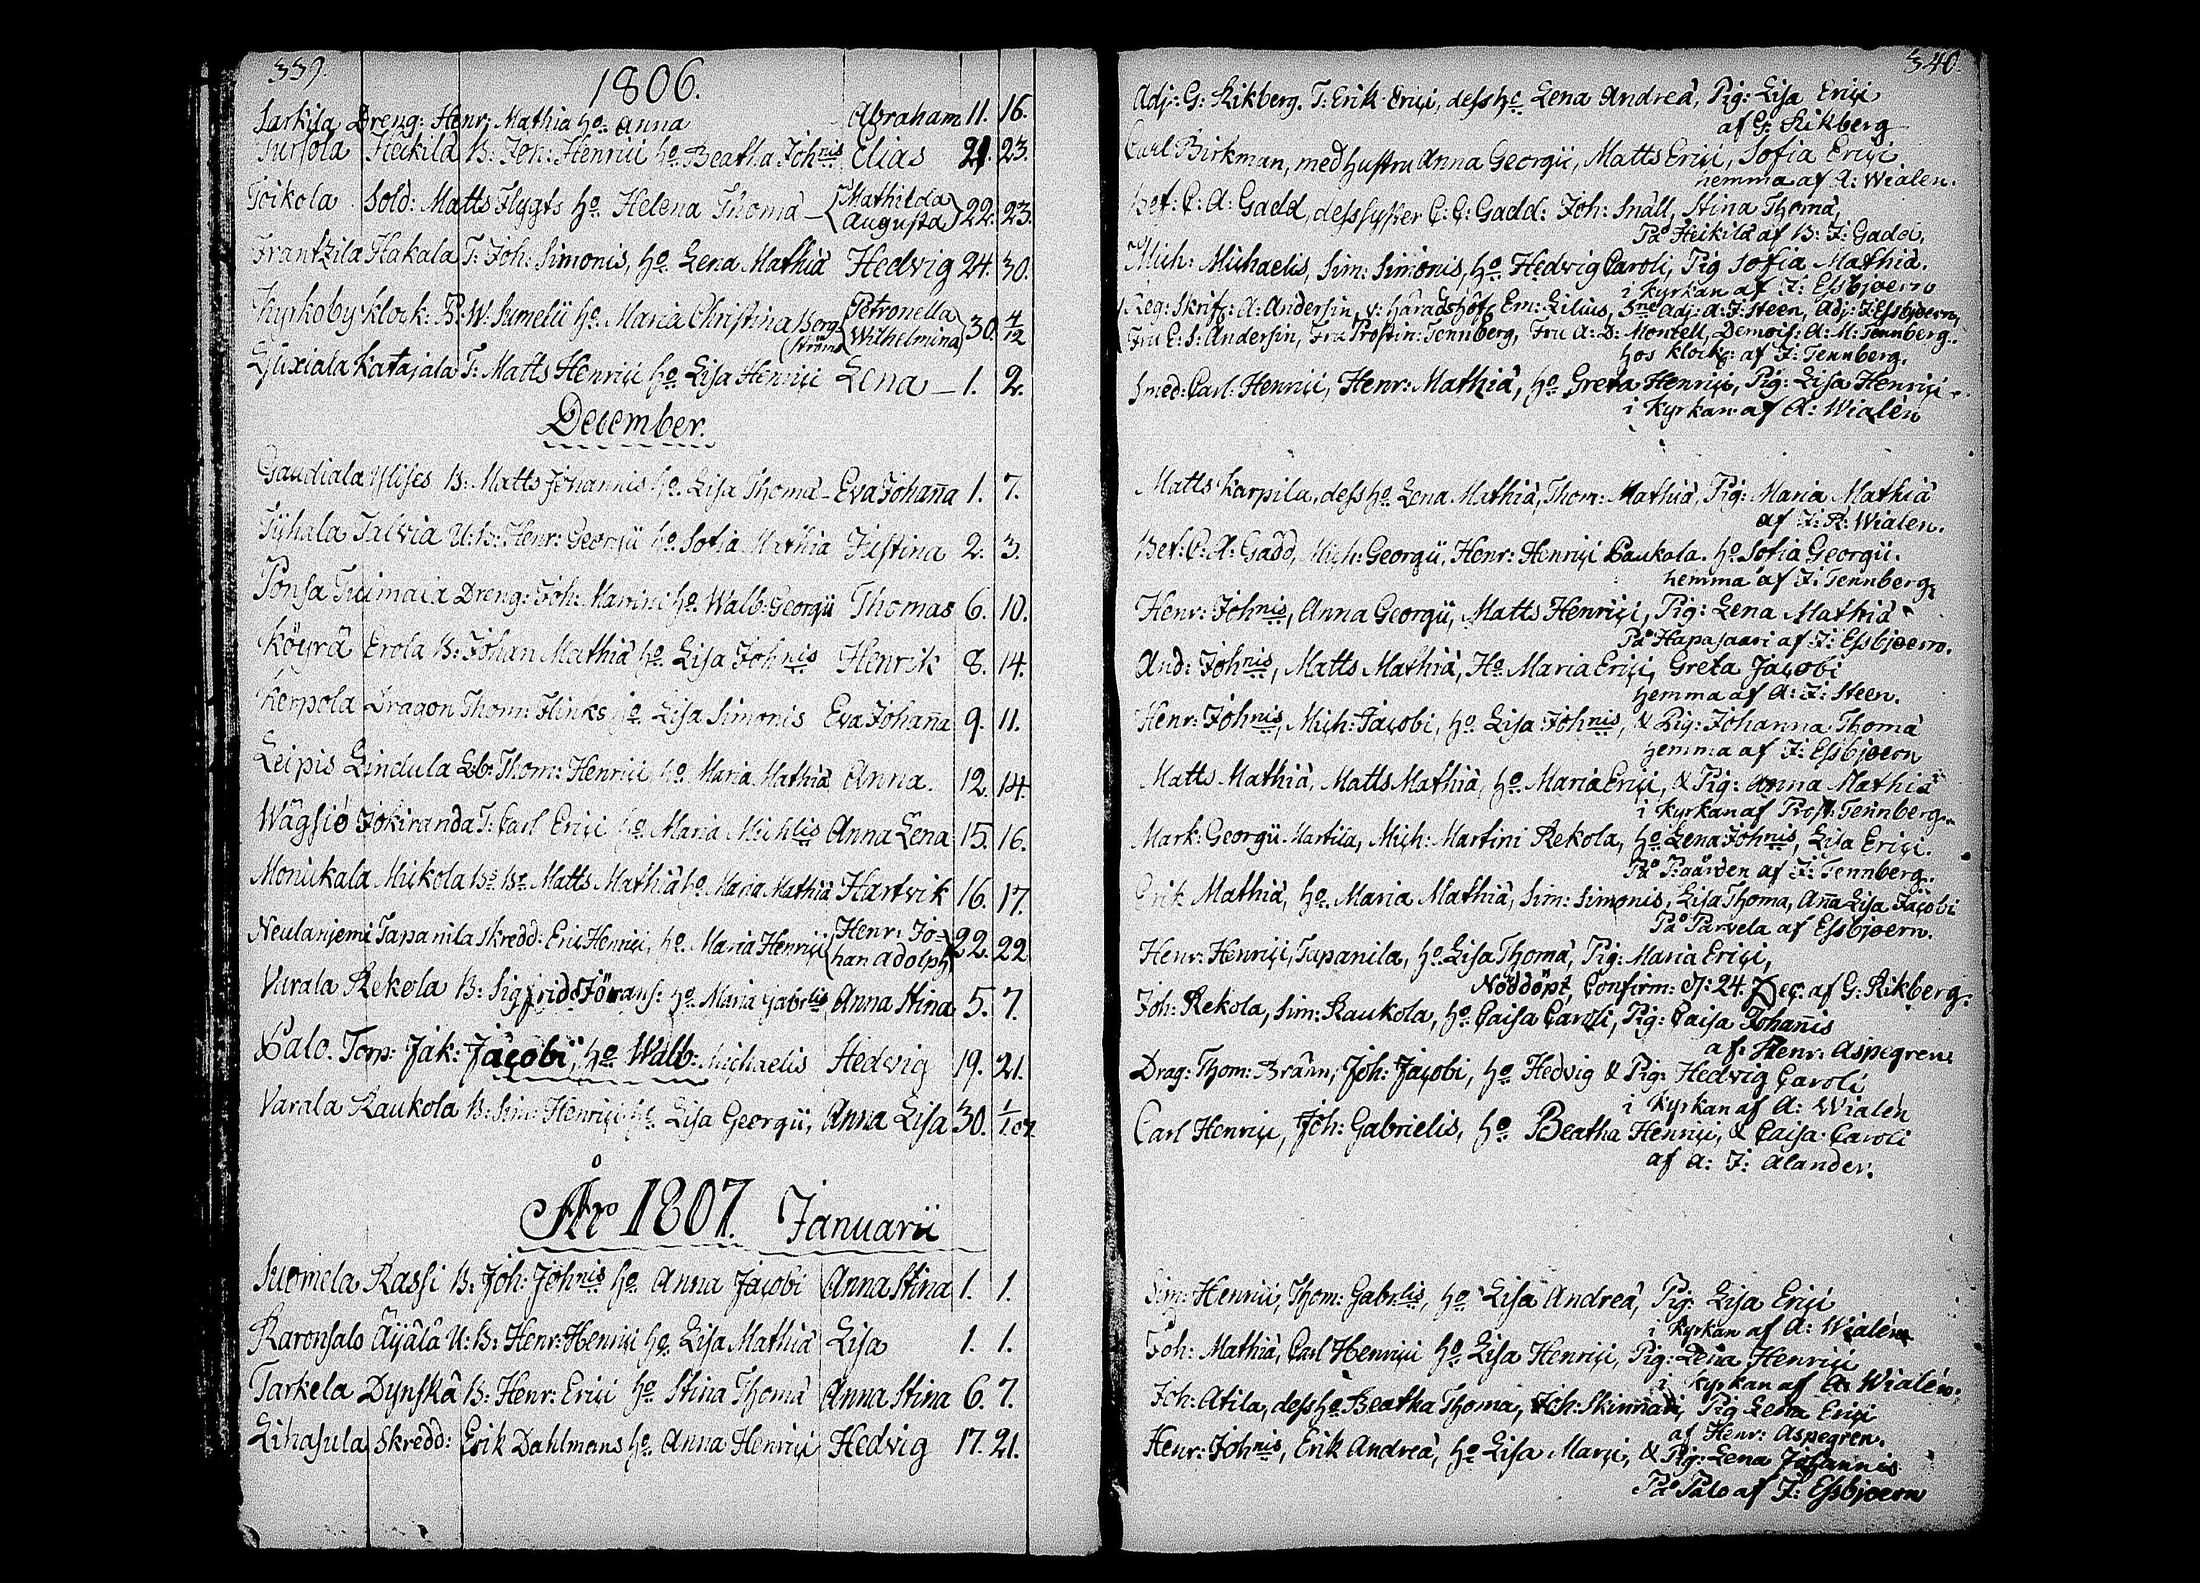 339.
1806.
Sarkila Dreng: Henr: Mathiæ ho. Anna Abraham 11. 16.
Tursola Heikilä B: Joh: Henrici ho Beatha Johnis Elias 21. 23.
Toikola Sold: Matts Flygts ho Helena Thomæ Mathilda
Augusta 22. 23.
Frantzila Hakala T: Joh: Simonis, ho Lena Mathiæ Hedvig 24. 30.
Kyrkoby klock: B: W: Sumelii ho Maria Christina Berg- Petronella
ström Wilhelmina 30. 4/12
Sjuxiala Katajala T: Matts Henrici ho Lisa Henrici Lena 1. 2.
December.
Gaudiala Ylises B: Matts Johannis ho Lisa Thomæ Eva Johaña 1. 7.
Talvia U: B: Henr: Georgii ho Sofia Mathiæ Justina 2. 3.
Ponsa Tuimala Dreng: Joh: Martini ho Walb: Georgii Thomas 6. 10.
Köyrä Erola B: Johan Mathiæ ho Lisa Johnis Henrik 8. 14.
Kerpola Dragon Thom: Flinks ho Lisa Simonis Eva Johaña 9. 11.
Leipis Lindula Lb: Thom: Henrici ho Maria Mathiæ Anna. 12. 14.
Wågsiö Jokiranda T: Carl Erici ho Maria Michlis Anna Lena 15. 16.
Monikala Mickola Bs Br Matts Mathiæ ho Maria Mathiæ Hartvik 16. 17.
Neulanjemi Tapanila Skredd: Eric Henrici, ho Maria Henrici Henr: Jo-
han Adolph 22. 22
Varala Rekola B: Sigfrid Görans: ho Maria Gabrlis Anna Stina 5. 7.
Palo. Torp: Jak: Jacobi, ho Walb: Michaelis Hedvig 19. 21.
Varala Raukola B: Sim: Henrici ho Lisa Georgii, Anna Lisa 30. 1/1.07.
År 1807. Januarii
Suomela Rassi B: Joh: Johnis ho Anna Jacobi Anna Stina 1. 1.
Raronsalo Äijälä U: B: Henr: Henrici ho Lisa Mathiæ Lisa 1. 1.
Tarkela Dynskä B: Henr: Erici ho Stina Thomæ Anna Stina 6. 7.
Lihasula Skredd: Erik Dahlmans ho Anna Henrici Hedvig 17. 21.
340.
Adj: G: Rikberg. T: Erik Erici, dess ho Lena Andreæ, Pig: Lisa Erici
af G: Rikberg
Carl Birkman, med hustru Anna Georgii, Matts Erici, Sofia Erici
hemma af A: Wialen.
Bef: C: A: Gadd, dess syster C: C: Gadd: Joh: Snäll, Stina Thomæ,
På Heikilä af B: J: Gadd.
Mich: Michaelis, Sim: Simonis, ho Hedvig Caroli, Pig Sofia Mathiæ.
i kyrkan af J: Essbjoern
Reg: Skrif: A: Andersin, v: häradshöf: Em: Lilius, Adj: A: J: Steen, Adj: J: Essbjoern,
Fru C: S: Andersin, Fru Prostin: Tennberg, Fru A: D: Montell, Demois: A: M: Tennberg.
hos klock: af J: Tennberg.
Smed: Carl: Henrici, Henr: Mathiæ, ho Greta Henrici, Pig: Lisa Henrici
i kyrkan af A: Wialén
Matts Karpila, dess ho Lena Mathiæ, Thom: Mathiæ, Pig: Maria Mathiæ
af J: R: Wialen.
Bef: C: A: Gadd, Mich: Georgii, Henr: Henrici Paukola. ho Sofia Georgii.
hemma af J: Tennberg
Henr: Johnis, Anna Georgii, Matts Henrici, Pig: Lena Mathiæ
På Hapasaari af J: Essbjoern.
And: Johnis, Matts Mathiæ, Ho Maria Erici, Greta Jacobi
hemma af A: J: Steen.
Henr: Johnis, Mich: Jacobi, ho Lisa Johnis, & Pig: Johanna Thomæ
hemma af J: Essbjoern
Matts Mathiæ, Matts Mathiæ, ho Maria Erici, & Pig: Anna Mathiæ
i kyrkan af Prost: Tennberg.
Mark: Georgii Martila, Mich: Martini Rekola, ho Lena Johnis, Lisa Erici.
På Pgården af J: Tennberg.
Erik Mathiæ, ho Maria Mathiæ, Sim: Simonis, Lisa Thomæ, Aña Lisa Jacobi
På Parvela af Essbjoern.
Henr: Henrici, Tapanila, ho Lisa Thomæ, Pig: Maria Erici,
Nöddöpt, Confirm: d: 24. Dec: af G: Rikberg.
Joh: Rekola, Sim: Raukola, ho Caisa Caroli, Pig: Caisa Johañis
af Henr: Aspegren.
Drag: Thom: Bränn, Joh: Jacobi, ho Hedvig & Pig: Hedvig Caroli
i kyrkan af A: Wialén
Carl Henrici, Joh: Gabrielis, ho Beatha Henrici, & Caisa Caroli
af A: J: Alander.
Sim: Henrici, Thom: Gabrlis, ho Lisa Andreæ, Pig: Lisa Erici
i kyrkan af A: Wialén
Joh: Mathiæ, Carl Henrici ho Lisa Henrici, Pig: Lena Henrici
i kyrkan af A: Wialén.
Joh: Atila, dess ho Beatha Thomæ, Joh: Skinnari, Pig Lena Erici
af Henr: Aspegren.
Henr: Johnis, Erik Andreæ, ho Lisa Marci, & Pig: Lena Johannis
På Palo af J: Essbjoern